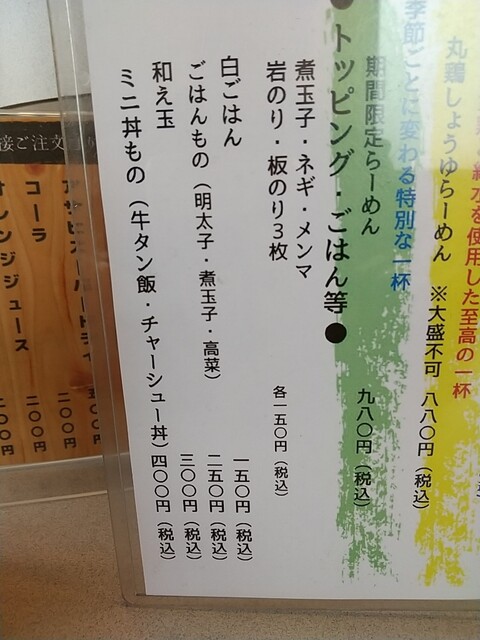 丸鶏しょうゆらーめん ※大盛不可 八八〇円(税込)
水を使用した至高の一杯
季節ごとに変わる特別な一杯
期間限定らーめん 九八〇円(税込)
●トッピング・ごはん等●
煮玉子・ネギ・メンマ
岩のり・板のり3枚
各一五〇円(税込)
白ごはん 一五〇円(税込)
ごはんもの(明太子・煮玉子・高菜) 二五〇円(税込)
和え玉 三〇〇円(税込)
ミニ丼もの(牛タン飯・チャーシュー丼) 四〇〇円(税込)
接ご注文
コーラ 二〇〇円
オレンジジュース 二〇〇円